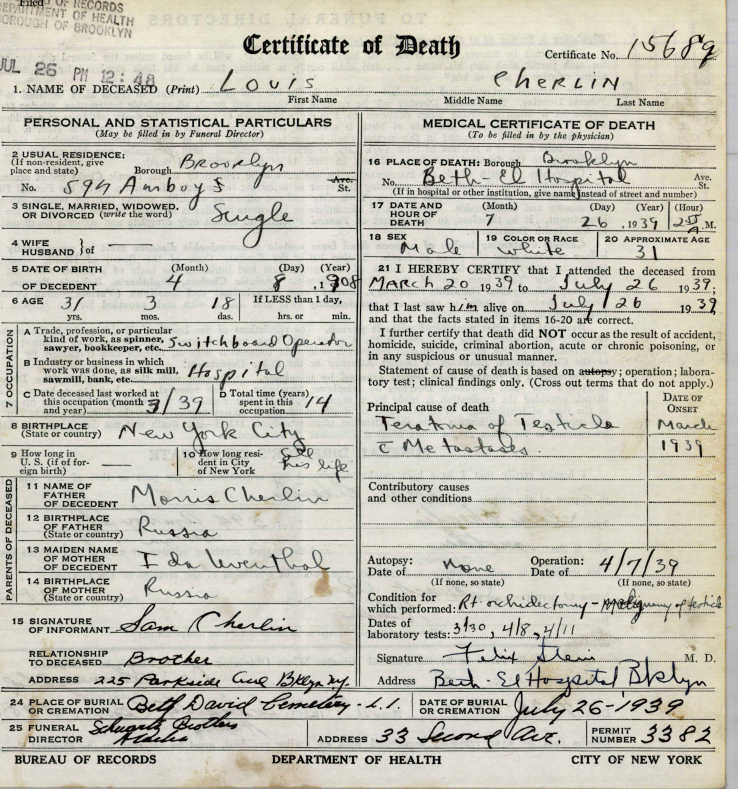 Filed
OF RECORDS
DEPARTMENT OF HEALTH
BOROUGH OF BROOKLYN
JUL 26 PM 12:48
Certificate of Death
Certificate No. 15689
1. NAME OF DECEASED (Print) Louis Cherlin
First Name Middle Name Last Name
PERSONAL AND STATISTICAL PARTICULARS
(May be filled in by Funeral Director)
2 USUAL RESIDENCE:
(If non-resident, give
place and state) Borough Brooklyn
No. 594 Amboy S Ave.
St.
3 SINGLE, MARRIED, WIDOWED,
OR DIVORCED (write the word) Single
4 WIFE
HUSBAND } of —
5 DATE OF BIRTH (Month) (Day) (Year)
OF DECEDENT 4 8, 1908
6 AGE 31 3 18 If LESS than 1 day,
yrs. mos. das. hrs. or min.
7 OCCUPATION
A Trade, profession, or particular
kind of work, as spinner,
sawyer, bookkeeper, etc. Switchboard Operator
B Industry or business in which
work was done, as silk mill,
sawmill, bank, etc. Hospital
C Date deceased last worked at
this occupation (month and year) 3/39
D Total time (years)
spent in this
occupation 14
8 BIRTHPLACE
(State or country) New York City
9 How long in
U. S. (if of for-
eign birth) —
10 How long resi-
dent in City
of New York All his life
PARENTS OF DECEASED
11 NAME OF
FATHER
OF DECEDENT Morris Cherlin
12 BIRTHPLACE
OF FATHER
(State or country) Russia
13 MAIDEN NAME
OF MOTHER
OF DECEDENT Ida Leventhal
14 BIRTHPLACE
OF MOTHER
(State or country) Russia
15 SIGNATURE
OF INFORMANT Sam Cherlin
RELATIONSHIP
TO DECEASED Brother
ADDRESS 225 Parkside Ave Bklyn N.Y.
MEDICAL CERTIFICATE OF DEATH
(To be filled in by the physician)
16 PLACE OF DEATH: Borough Brooklyn
No. Beth-El Hospital Ave.
St.
(If in hospital or other institution, give name instead of street and number)
17 DATE AND
HOUR OF
DEATH (Month) (Day) (Year) (Hour)
7 26, 1939 A M.
18 SEX
Male
19 COLOR OR RACE
White
20 APPROXIMATE AGE
31
21 I HEREBY CERTIFY that I attended the deceased from
March 20 1939 to July 26 1939;
that I last saw him alive on July 26 1939
and that the facts stated in items 16-20 are correct.
I further certify that death did NOT occur as the result of accident,
homicide, suicide, criminal abortion, acute or chronic poisoning, or
in any suspicious or unusual manner.
Statement of cause of death is based on autopsy; operation; labora-
tory test; clinical findings only. (Cross out terms that do not apply.)
Principal cause of death DATE OF
ONSET
Teratoma of Testicle March
c̄ Metastases. 1939
Contributory causes
and other conditions
Autopsy: Date of None Operation: Date of 4/7/39
(If none, so state) (If none, so state)
Condition for
which performed: Rt orchidectomy - malignancy of testicle
Dates of
laboratory tests: 3/30, 4/8, 4/11
Signature Felix Stein M. D.
Address Beth-El Hospital Bklyn
24 PLACE OF BURIAL
OR CREMATION Beth David Cemetery - L.I.
DATE OF BURIAL
OR CREMATION July 26-1939
25 FUNERAL
DIRECTOR Schwartz Brothers
ADDRESS 33 Second Ave.
PERMIT
NUMBER 3382
BUREAU OF RECORDS DEPARTMENT OF HEALTH CITY OF NEW YORK